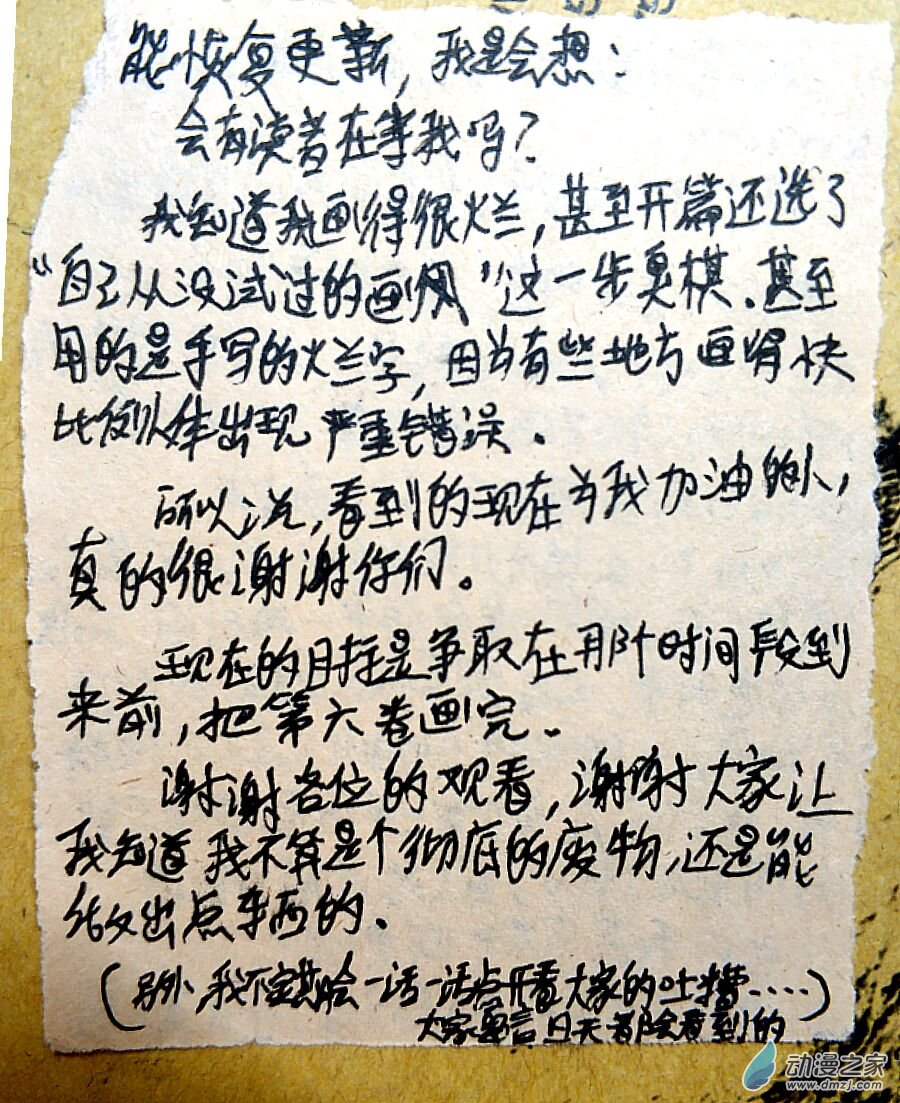 能恢复更新,我是会想:
会有读者在等我吗?
我知道我画得很烂,甚至开篇还选了
“自己从没试过的画风”这一步臭棋、甚至
用的是手写的烂字,因为有些地方画得快
比例人体出现严重错误.
所以说,看到的现在为我加油的小,
真的很谢谢你们。
现在的目标是争取在那个时间段到
来前,把第六卷画完。
谢谢各位的观看,谢谢大家让
我知道我不算是个彻底的废物,还是能
做出点东西的.
(另外、我不定期会一话一话点开看大家的吐槽.....)
大家留言 天都会看到的
动漫之家
www.dmzj.com